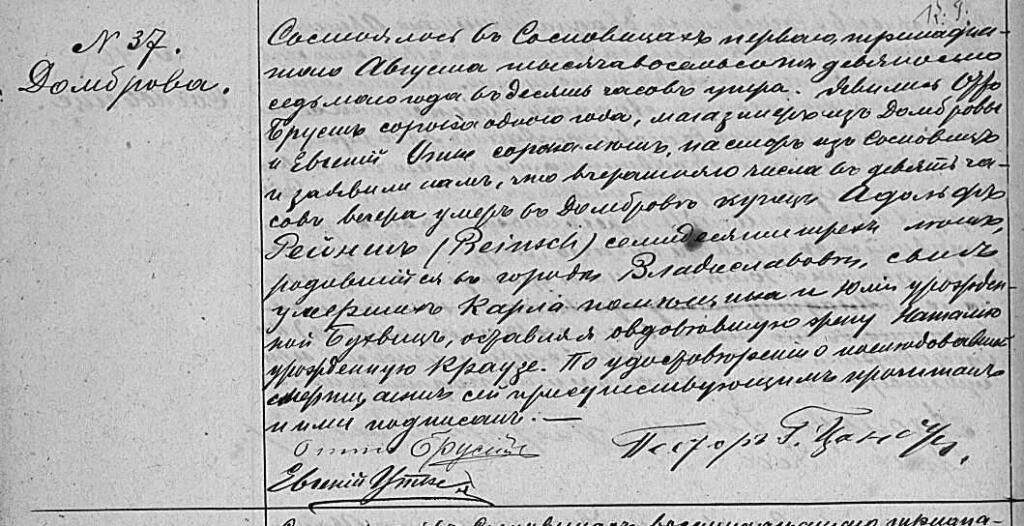 N 37.
Домброва.
Состоялось въ Сосновицахъ перваго, тринадца-
таго Августа тысяча восемьсотъ девяносто
седьмаго года въ десять часовъ утра. Явились Отто
Брусть сорока одного года, магазинеръ изъ Домбровы
и Евгеній Утке сорока лѣтъ, пасторъ изъ Сосновицъ
и заявили намъ, что вчерашняго числа въ девять ча-
совъ вечера умеръ въ Домбровѣ купецъ Адольфъ
Рейншъ (Reinsch) семидесяти трехъ лѣтъ,
родившійся въ городѣ Владиславовѣ, сынъ
умершихъ Карла помѣщика и Юліи урожден-
ной Бухвицъ, оставляя овдовѣвшую жену Наталію
урожденную Краузе. По удостовѣреніи о послѣдовавшей
смерти, актъ сей присутствующимъ прочитанъ
и ими подписанъ. —
Отто
Пасторъ Г.
Евгеній Утке